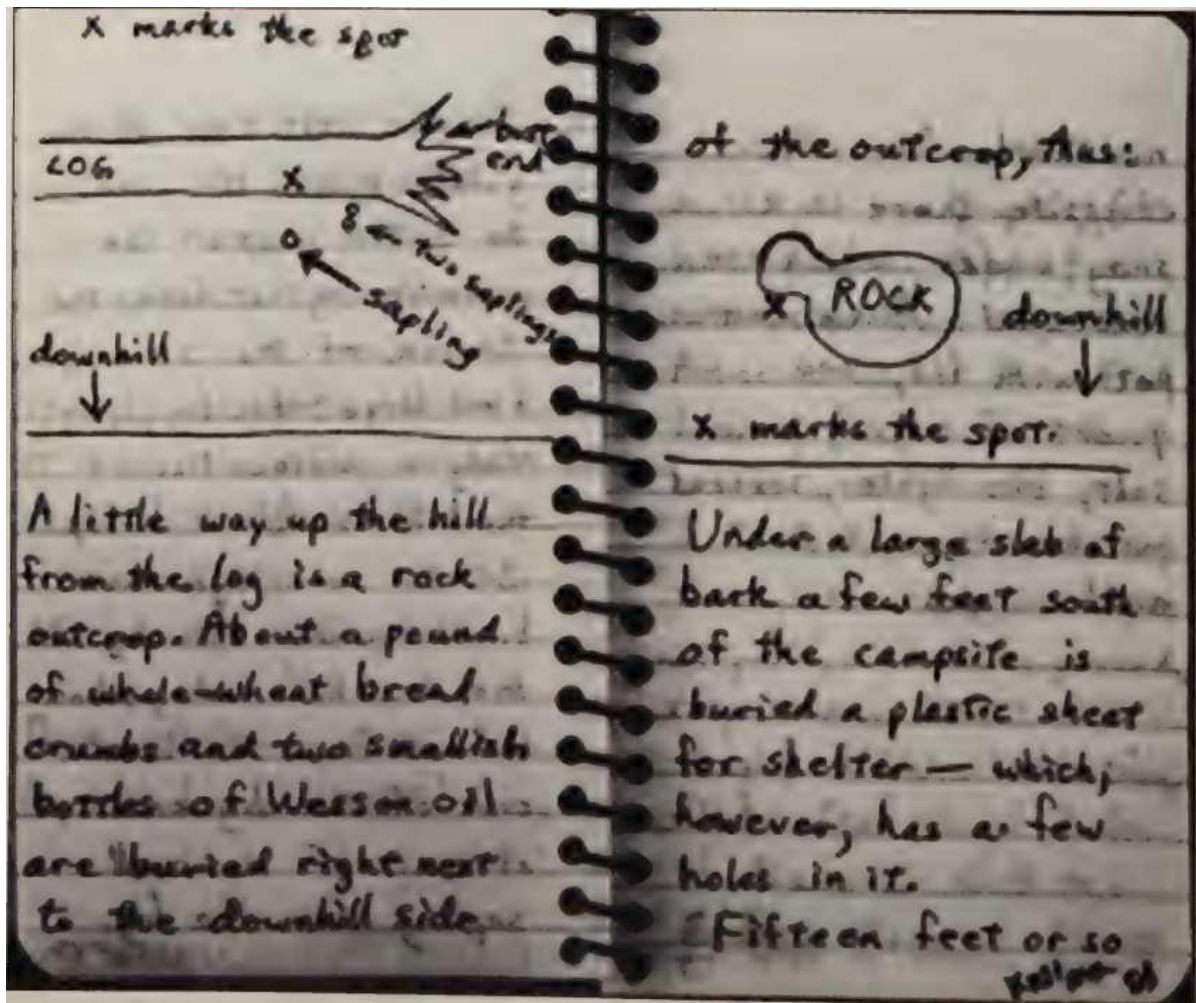 x marks the spot
LOG
x
burnt
end
two saplings
sapling
downhill
A little way up the hill
from the log is a rock
outcrop. About a pound
of whole-wheat bread
crumbs and two smallish
bottles of Wesson oil
are buried right next
to the downhill side
of the outcrop, thus:
ROCK
x
downhill
x marks the spot.
Under a large slab of
bark a few feet south
of the campsite is
buried a plastic sheet
for shelter — which,
however, has a few
holes in it.
Fifteen feet or so